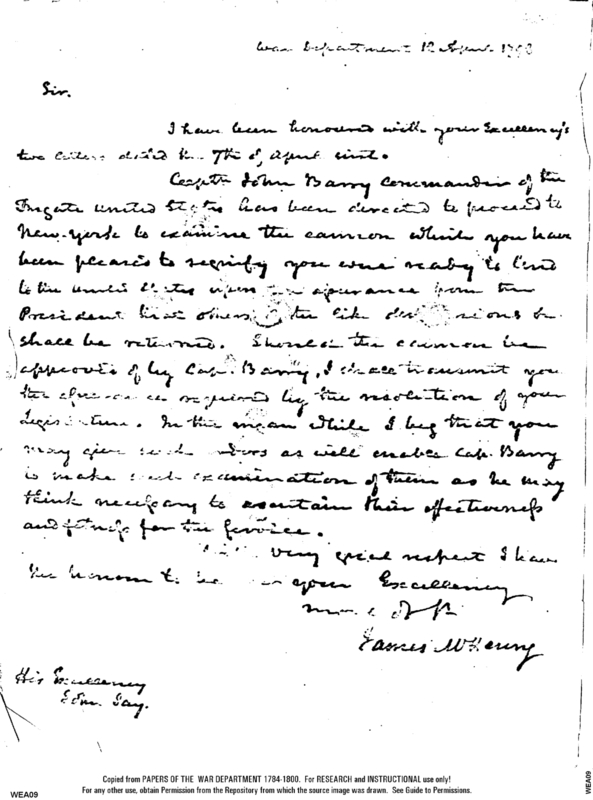 War Department 12 April 1798
Sir.
I have been honoured with your Excellency's
two letters dated the 7th of April inst.
Captn John Barry Commander of the
Frigate united States has been directed to proceed to
New-York to examine the cannon which you have
been pleased to signify you were ready to lend
to the united States upon assurance from the
President that others the like
shall be returned. Should the cannon be
approved of by Cap. Barry, I shall transmit you
the assurance required by the resolution of your
Legislature. In the mean while I beg that you
may give such orders as will enable Cap. Barry
to make such examination of them as he may
think necessary to ascertain their effectiveness
and fitness for the service.
very great respect I have
the honour to be your Excellency
James McHenry
His Excellency
Jay.
Copied from PAPERS OF THE WAR DEPARTMENT 1784-1800. For RESEARCH and INSTRUCTIONAL use only!
For any other use, obtain Permission from the Repository from which the source image was drawn. See Guide to Permissions.
WEA09
WEA09